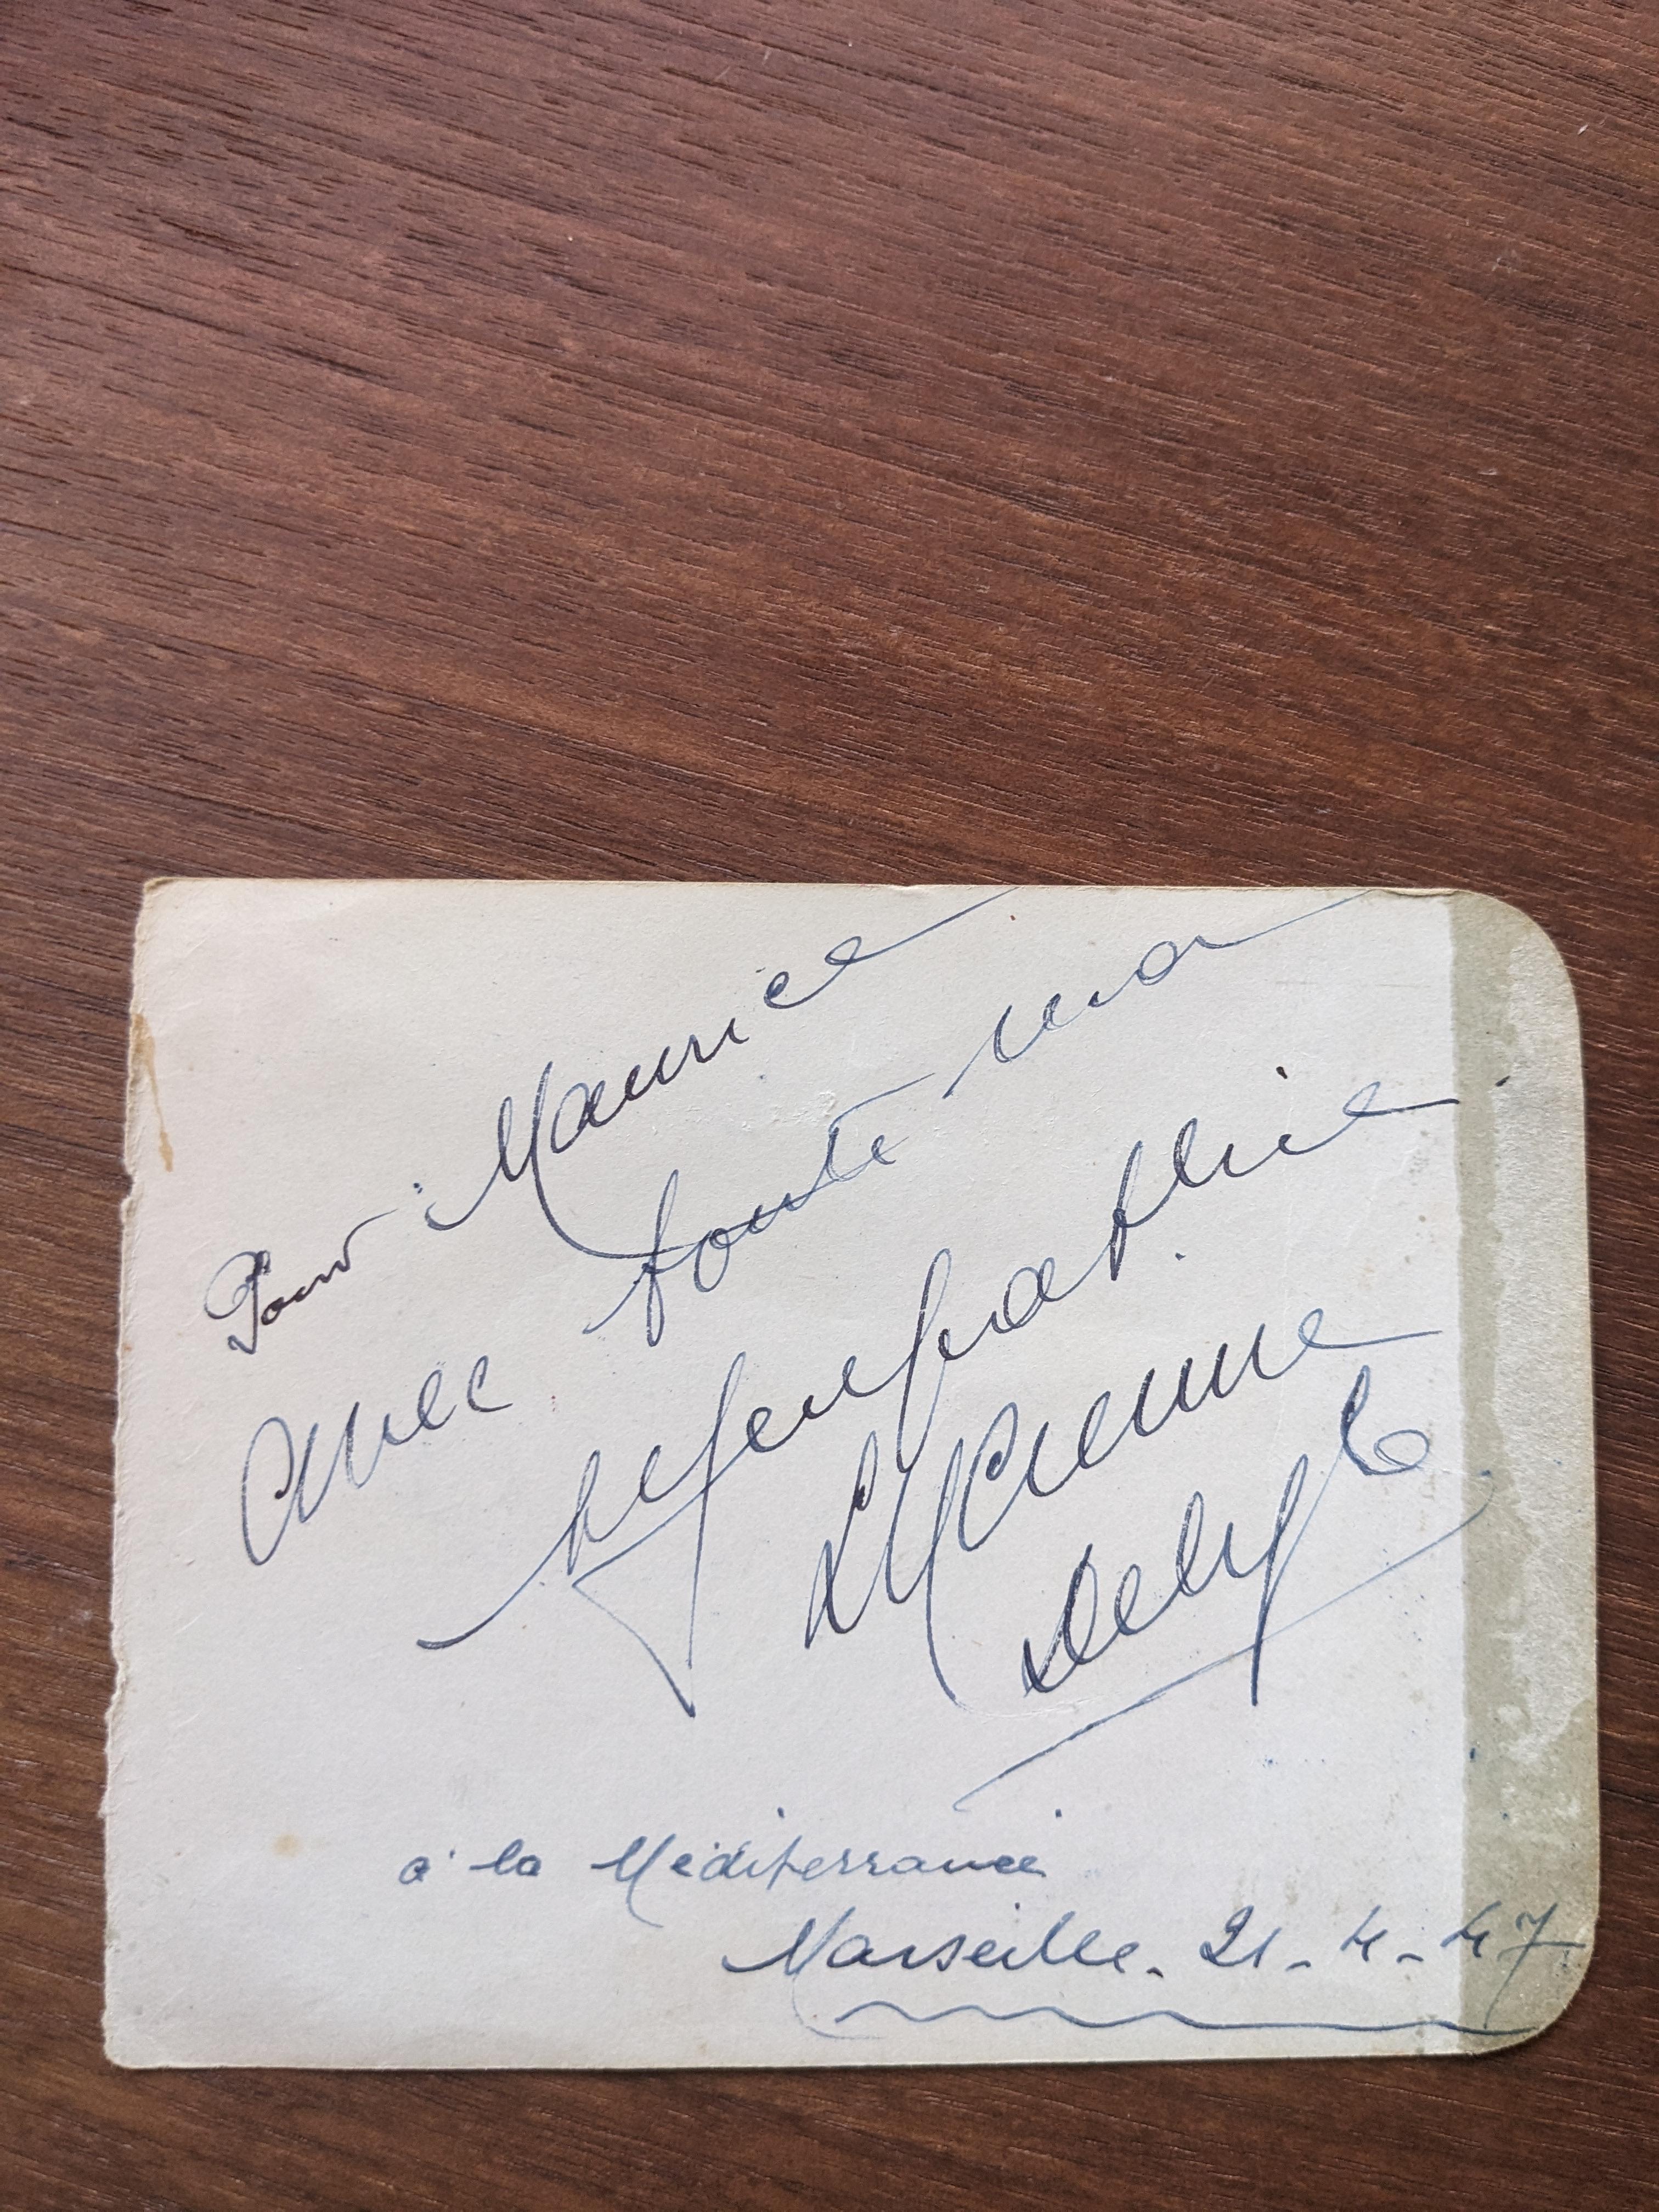 Pour Maurice
avec toute ma
sympathie
Lucienne
Delyle
à la Méditerranée
Marseille. 21-4-47